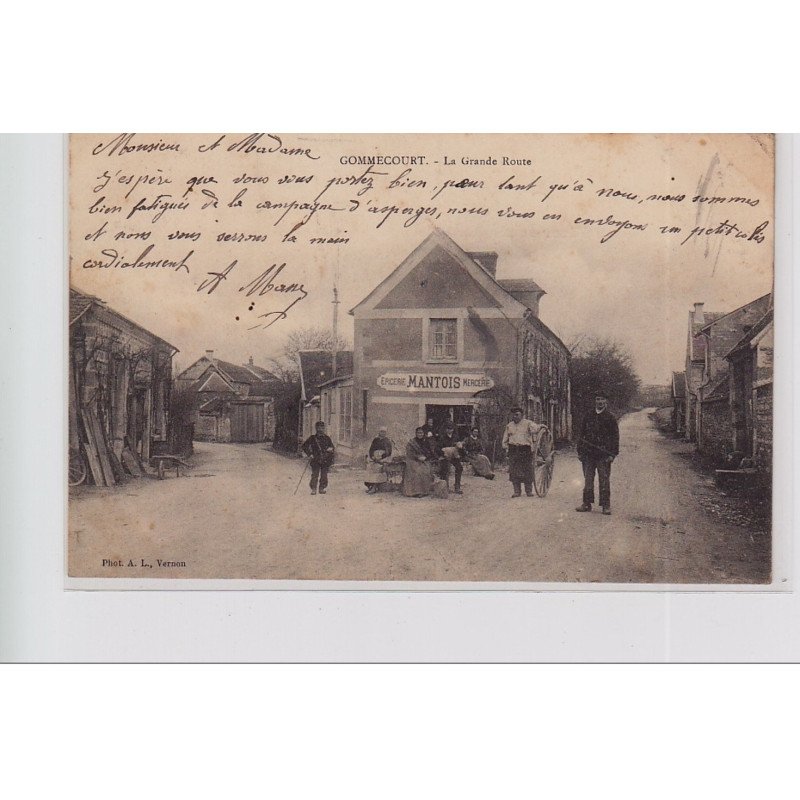 GOMMECOURT. - La Grande Route
Monsieur et Madame
J'espère que vous vous portez bien, pour tant qu'à nous, nous sommes
bien fatigués de la campagne d'asperges, nous vous en envoyons un petit colis
et nous vous serrons la main
cordialement
EPICERIE MANTOIS MERCERIE
Phot. A. L., Vernon